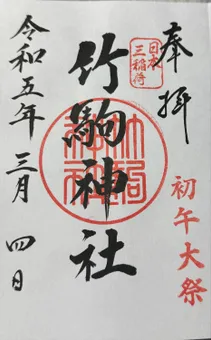 奉拝
日本
三稲荷
初午大祭
竹駒神社
令和五年三月四日